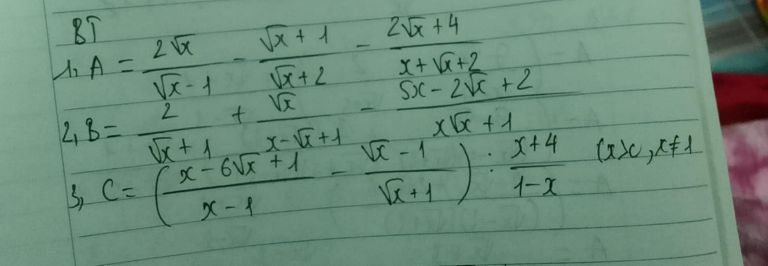 BT
1, A = \frac{2\sqrt{x}}{\sqrt{x}-1} - \frac{\sqrt{x}+1}{\sqrt{x}+2} - \frac{2\sqrt{x}+4}{x+\sqrt{x}+2}
2, B = \frac{2}{\sqrt{x}+1} + \frac{\sqrt{x}}{x-\sqrt{x}+1} - \frac{5x-2\sqrt{x}+2}{x\sqrt{x}+1}
3, C = \left(\frac{x-6\sqrt{x}+1}{x-1} - \frac{\sqrt{x}-1}{\sqrt{x}+1}\right) : \frac{x+4}{1-x} (x>, x≠1